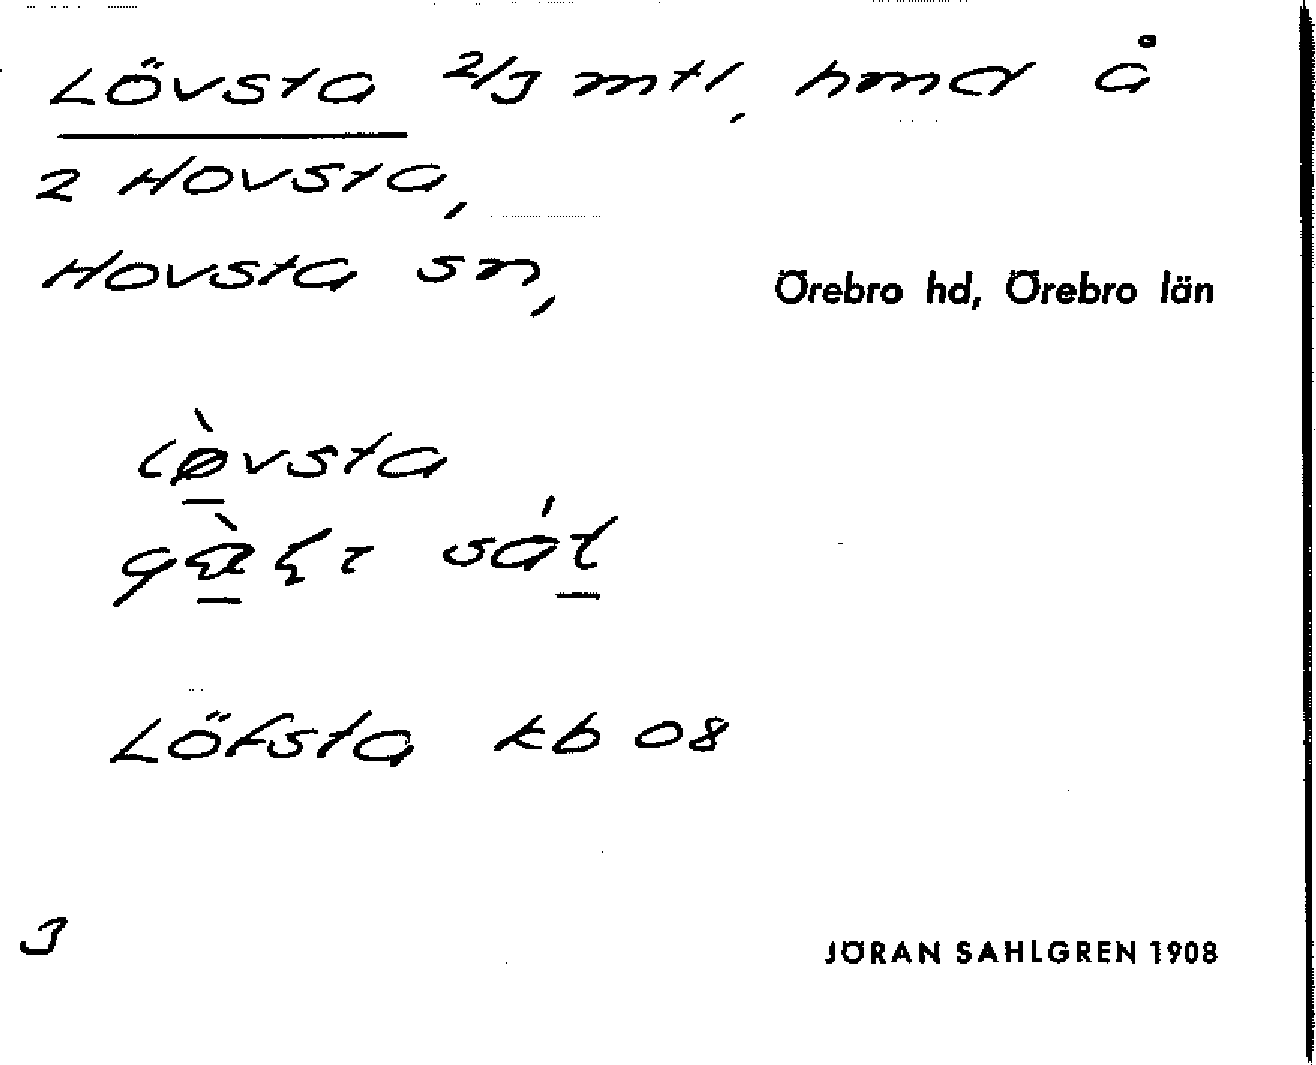 LÖVSTA 2/3 mtl, hmd å
2 HOVSTA,
HOVSTA sn,
Örebro hd, Örebro län
lø̀vsta
sát
LÖFSTA kb 08
3
JÖRAN SAHLGREN 1908